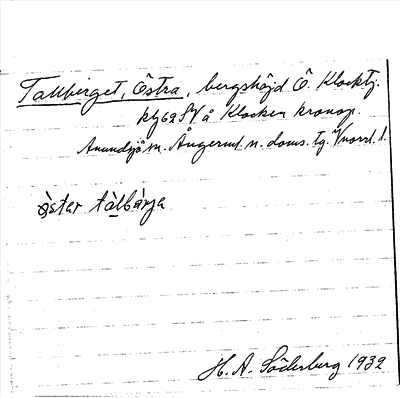 Tallberget, Östra, bergshöjd Ö. Klocktj.
kg 62 SV å Klocken kronop.
Anundsjö sn. Ångerml. n. doms. tg. Vnorrl. l.
östar tàlbárja
H. A. Söderberg 1932